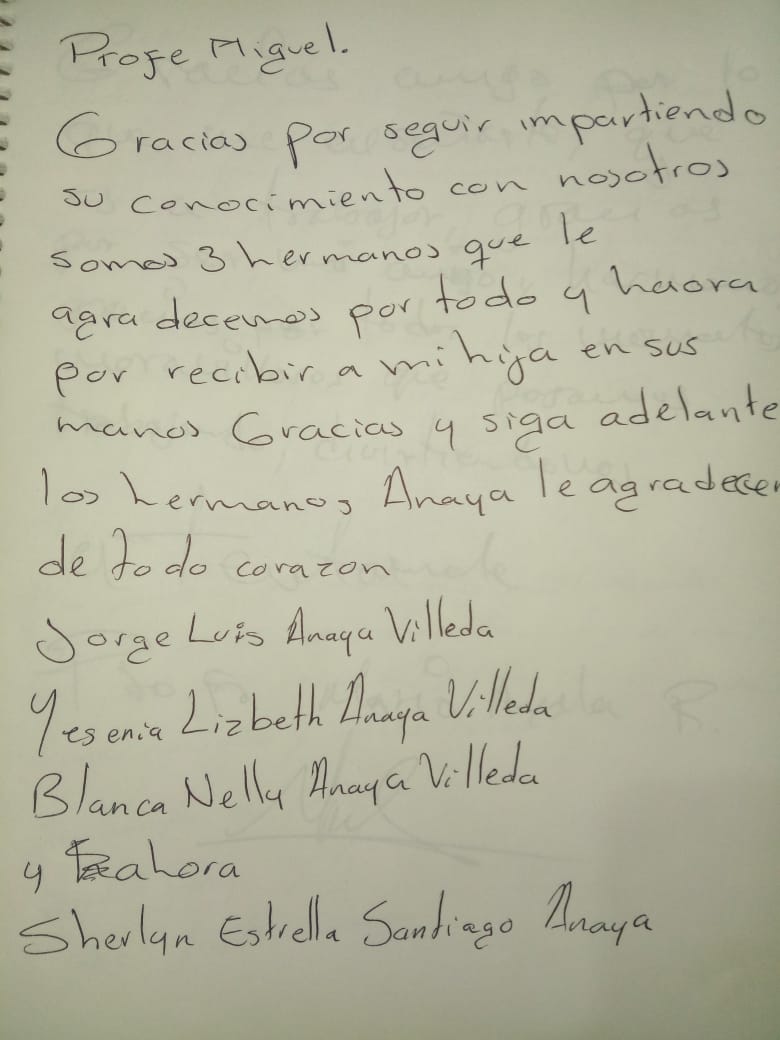 Profe Miguel.
Gracias por seguir impartiendo
su conocimiento con nosotros
somos 3 hermanos que le
agradecemos por todo y haora
por recibir a mi hija en sus
manos Gracias y siga adelante
los hermanos Anaya le agradecen
de todo corazon
Jorge Luis Anaya Villeda
Yesenia Lizbeth Anaya Villeda
Blanca Nelly Anaya Villeda
y ahora
Sherlyn Estrella Santiago Anaya